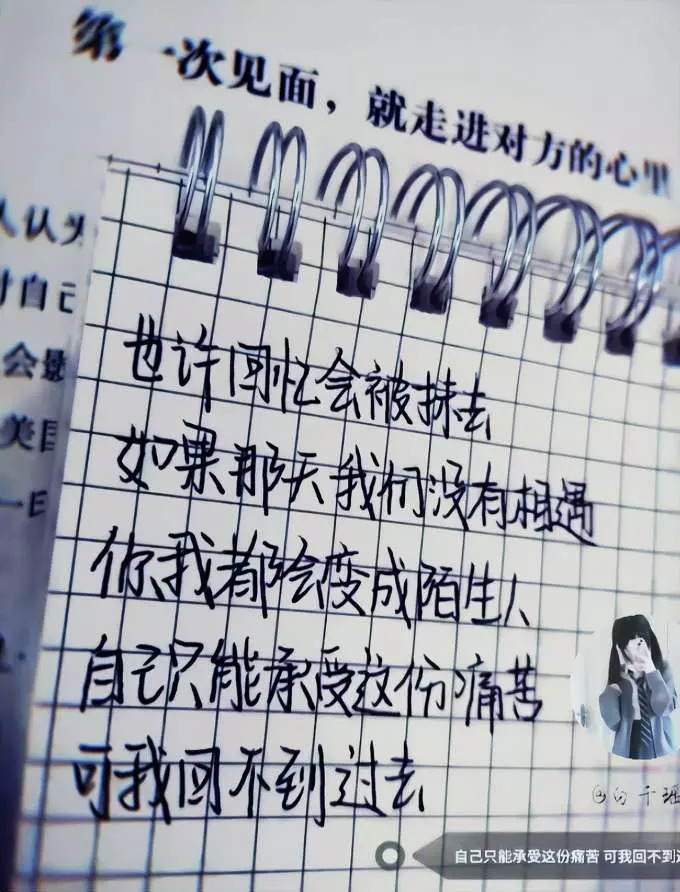 第一次见面，就走进对方的心里
人认为
对自己
会影
美国
一日
也许回忆会被抹去
如果那天我们没有相遇
你我都会变成陌生人
自己只能承受这份痛苦
可我回不到过去
@白千
自己只能承受这份痛苦 可我回不到过